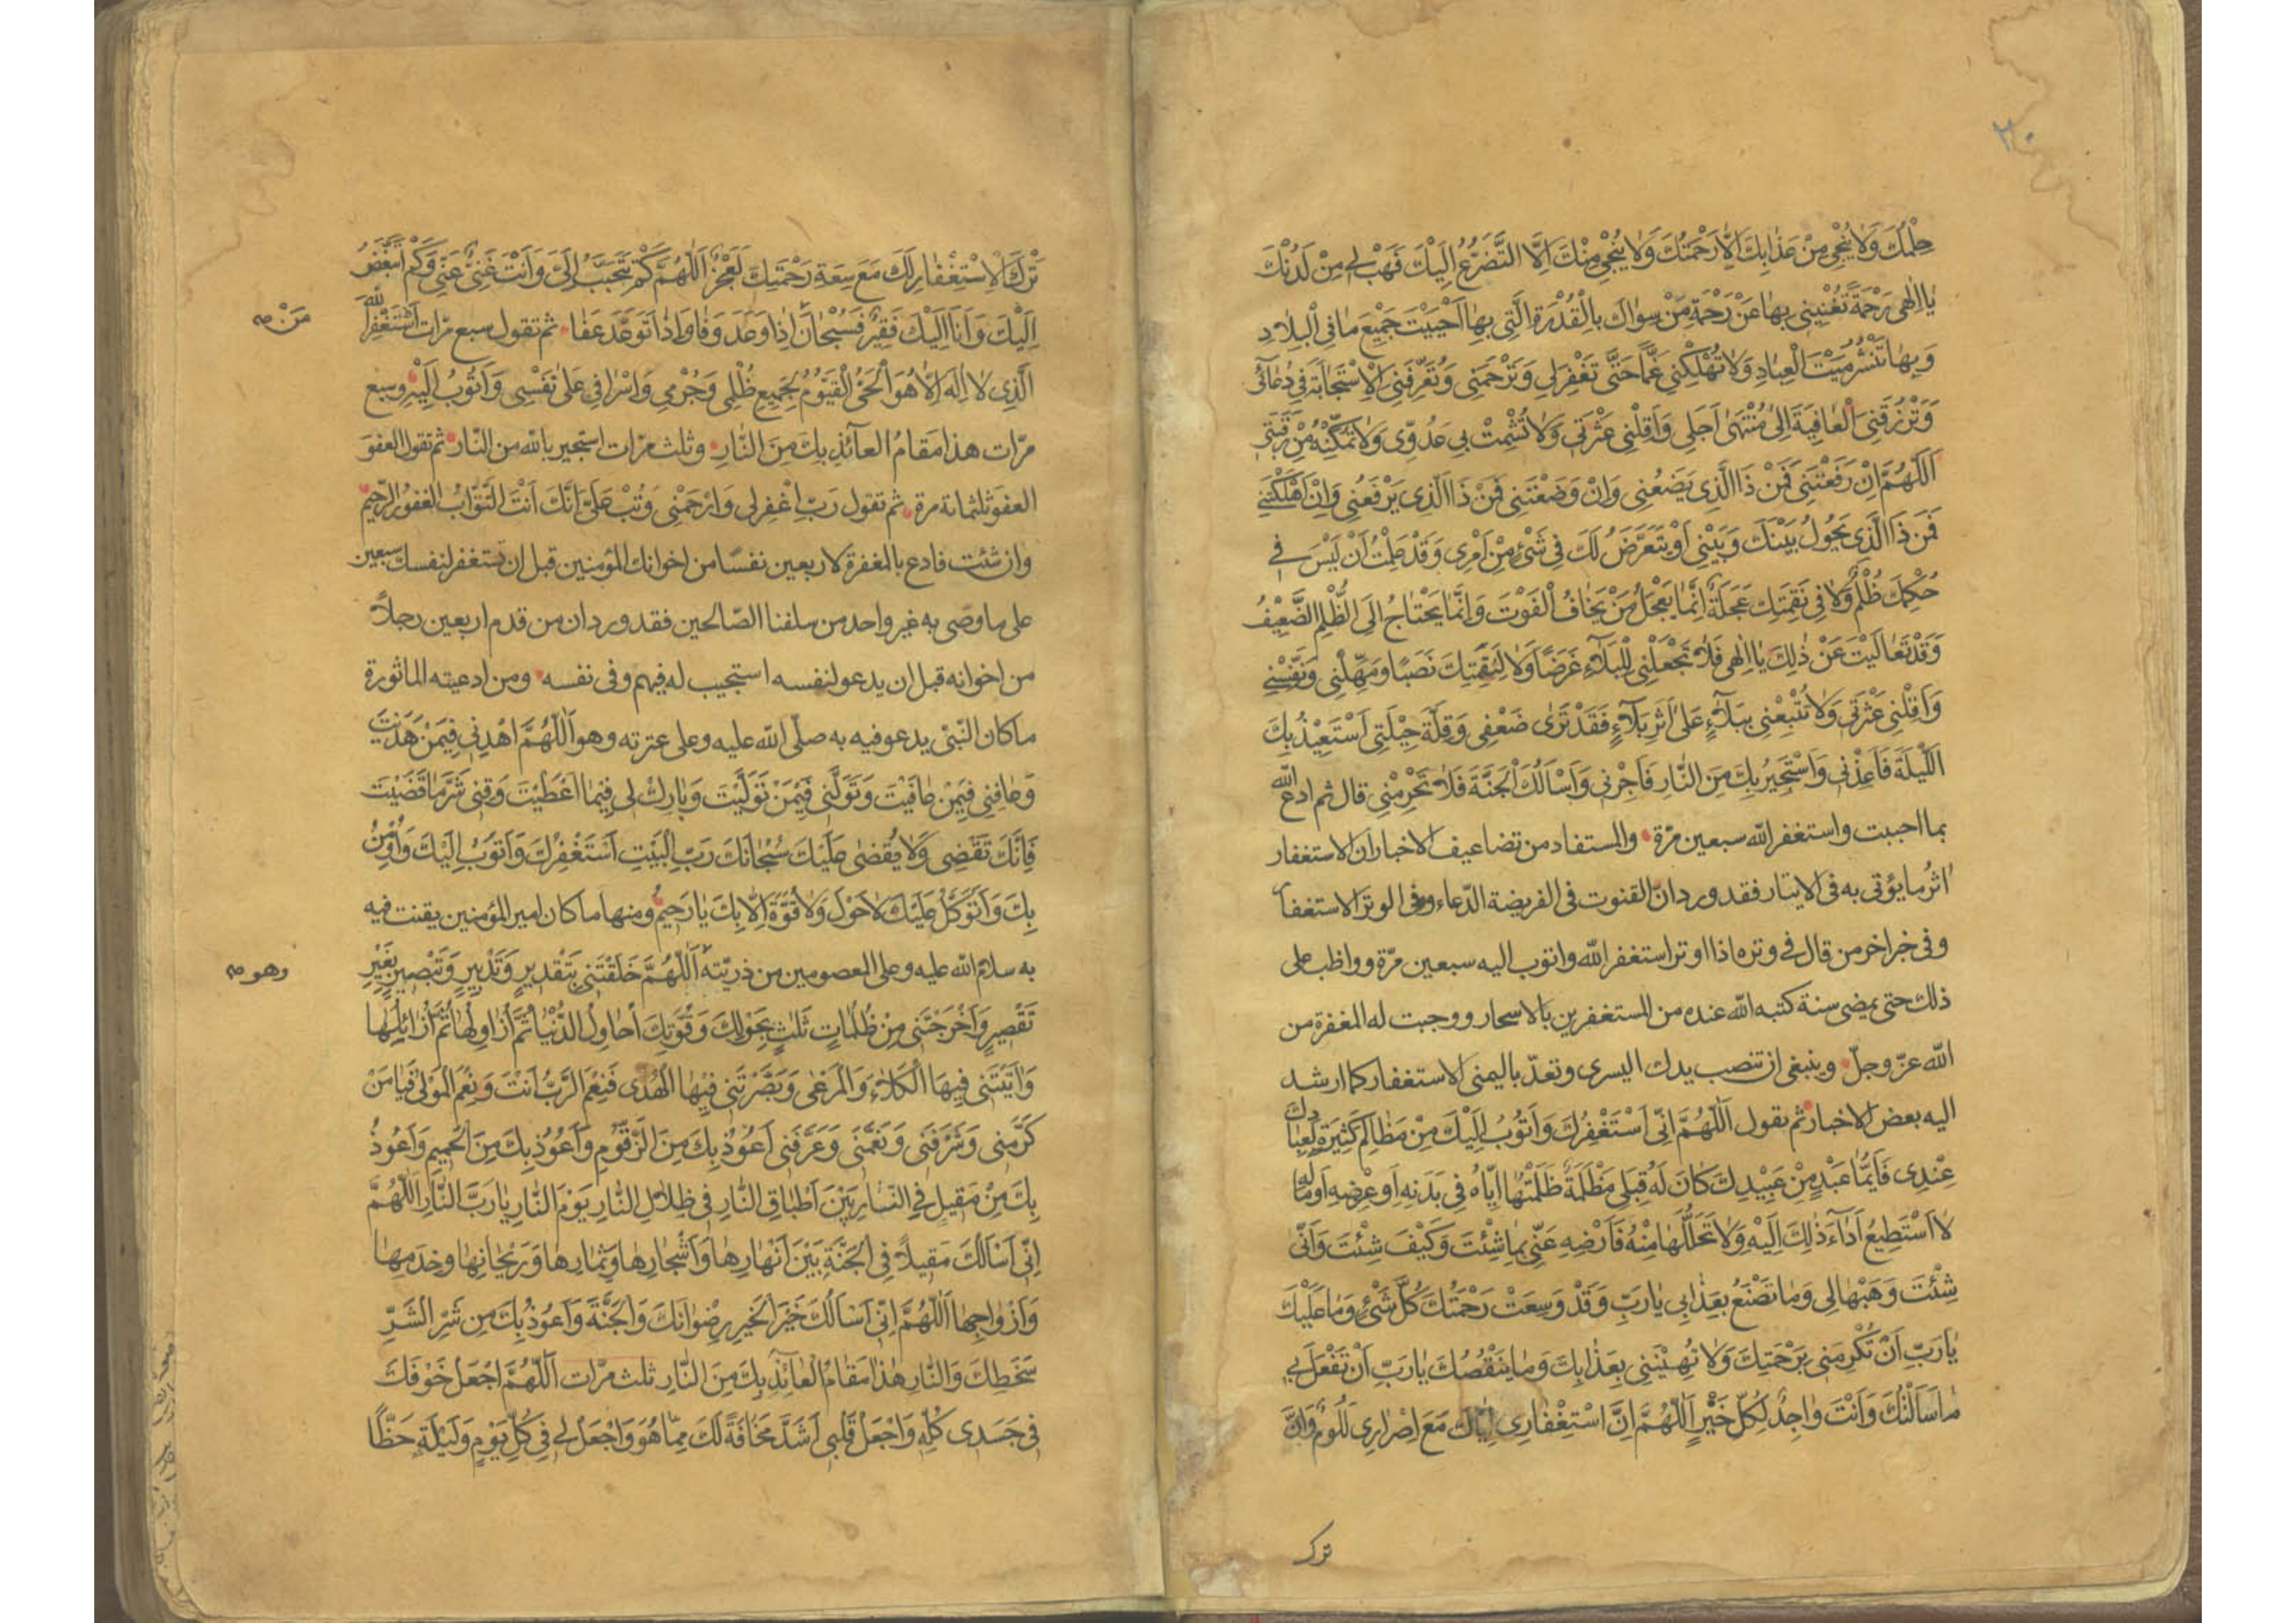 ٢٠
حِلْمُكَ وَلَا يُنْجِي مِنْ عَذَابِكَ اِلَّا رَحْمَتُكَ وَلَا يُنْجِي مِنْكَ اِلَّا التَّضَرُّعُ اِلَيْكَ فَهَبْ لِي مِنْ لَدُنْكَ
يَا اِلٰهِي رَحْمَةً تُغْنِينِي بِهَا عَنْ رَحْمَةِ مَنْ سِوَاكَ بِالْقُدْرَةِ الَّتِي بِهَا اَحْيَيْتَ جَمِيعَ مَا فِي الْبِلَادِ
وَبِهَا تَنْشُرُ مَيْتَ الْعِبَادِ وَلَا تُهْلِكْنِي غَمًّا حَتَّى تَغْفِرَ لِي وَتَرْحَمَنِي وَتُعَرِّفَنِي الْاِسْتِجَابَةَ فِي دُعَائِي
وَتَرْزُقَنِي الْعَافِيَةَ اِلَى مُنْتَهَى اَجَلِي وَاَقِلْنِي عَثْرَتِي وَلَا تُشْمِتْ بِي عَدُوِّي وَلَا تُمَكِّنْهُ مِنْ رَقَبَتِي
اَللّٰهُمَّ اِنْ رَفَعْتَنِي فَمَنْ ذَا الَّذِي يَضَعُنِي وَاِنْ وَضَعْتَنِي فَمَنْ ذَا الَّذِي يَرْفَعُنِي وَاِنْ اَهْلَكْتَنِي
فَمَنْ ذَا الَّذِي يَحُولُ بَيْنَكَ وَبَيْنِي اَوْ يَتَعَرَّضُ لَكَ فِي شَيْءٍ مِنْ اَمْرِي وَقَدْ عَلِمْتُ اَنْ لَيْسَ فِي
حُكْمِكَ ظُلْمٌ وَلَا فِي نَقِمَتِكَ عَجَلَةٌ اِنَّمَا يَعْجَلُ مَنْ يَخَافُ الْفَوْتَ وَاِنَّمَا يَحْتَاجُ اِلَى الظُّلْمِ الضَّعِيْفُ
وَقَدْ تَعَالَيْتَ عَنْ ذٰلِكَ يَا اِلٰهِي فَلَا تَجْعَلْنِي لِلْبَلَاءِ غَرَضًا وَلَا لِنَقِمَتِكَ نَصَبًا وَمَهِّلْنِي وَنَفِّسْنِي
وَاَقِلْنِي عَثْرَتِي وَلَا تُتْبِعْنِي بِبَلَاءٍ عَلَى اَثَرِ بَلَاءٍ فَقَدْ تَرَى ضَعْفِي وَقِلَّةَ حِيْلَتِي اَسْتَعِيْذُ بِكَ
اَللَّيْلَةَ فَاَعِذْنِي وَاَسْتَجِيرُ بِكَ مِنَ النَّارِ فَاَجِرْنِي وَاَسْاَلُكَ الْجَنَّةَ فَلَا تَحْرِمْنِي قال ثم ادع الله
بما احببت واستغفر الله سبعين مرّة والمستفاد من تضاعيف الاخبار ان الاستغفار
اثرُ ما يؤتى به فى الايتار فقد ورد انّ القنوت فى الفريضة الدّعاء وفى الوتر الاستغفار
وفى خبر اخر من قال فى وتره اذا اوتر استغفر الله واتوب اليه سبعين مرّة وواظب على
ذلك حتى يمضى سنة كتبه الله عنده من المستغفرين بالاسحار ووجبت له المغفرة من
الله عزّ وجلّ وينبغى ان تنصب يدك اليسرى وتعدّ باليمنى الاستغفار كما ارشد
اليه بعض الاخبار ثم تقول اَللّٰهُمَّ اِنِّي اَسْتَغْفِرُكَ وَاَتُوبُ اِلَيْكَ مِنْ مَظَالِمَ كَثِيرَةٍ لِعِبَادِكَ
عِنْدِي فَاَيُّمَا عَبْدٍ مِنْ عَبِيْدِكَ كَانَ لَهُ قِبَلِي مَظْلَمَةٌ ظَلَمْتُهَا اِيَّاهُ فِي بَدَنِهِ اَوْ عِرْضِهِ اَوْ مَالِهِ
لَا اَسْتَطِيعُ اَدَاءَ ذٰلِكَ اِلَيْهِ وَلَا تَحَلُّلَهَا مِنْهُ فَاَرْضِهِ عَنِّي بِمَا شِئْتَ وَكَيْفَ شِئْتَ وَاَنَّى
شِئْتَ وَهَبْهَا لِي وَمَا تَصْنَعُ بِعَذَابِي يَا رَبِّ وَقَدْ وَسِعَتْ رَحْمَتُكَ كُلَّ شَيْءٍ وَمَا عَلَيْكَ
يَا رَبِّ اَنْ تُكْرِمَنِي بِرَحْمَتِكَ وَلَا تُهِيْنَنِي بِعَذَابِكَ وَمَا يَنْقُصُكَ يَا رَبِّ اَنْ تَفْعَلَ بِي
مَا سَاَلْتُكَ وَاَنْتَ وَاجِدٌ لِكُلِّ خَيْرٍ اَللّٰهُمَّ اِنَّ اسْتِغْفَارِي اِيَّاكَ مَعَ اِصْرَارِي لَلُؤمٌ وَاِنَّ
ترك
تَرْكَ الْاِسْتِغْفَارِ لَكَ مَعَ سِعَةِ رَحْمَتِكَ لَعَجْزٌ اَللّٰهُمَّ كَمْ تَتَحَبَّبُ اِلَيَّ وَاَنْتَ غَنِيٌّ عَنِّي وَكَمْ اَتَبَغَّضُ
اِلَيْكَ وَاَنَا اِلَيْكَ فَقِيْرٌ فَسُبْحَانَ اِذَا وَعَدَ وَفَا وَاِذَا تَوَعَّدَ عَفَا ثم تقول سبع مرّات اَسْتَغْفِرُ اللهَ
مَنْ صح
الَّذِي لَا اِلٰهَ اِلَّا هُوَ الْحَيُّ الْقَيُّومُ لِجَمِيعِ ظُلْمِي وَجُرْمِي وَاِسْرَافِي عَلَى نَفْسِي وَاَتُوبُ اِلَيْهِ وسبع
مرّات هذا مَقَامُ الْعَائِذِ بِكَ مِنَ النَّارِ وثلث مرّات استجير بالله من النّار ثم تقول العفوَ
العفوَ ثلثمائة مرة ثم تقول رَبِّ اغْفِرْ لِي وَارْحَمْنِي وَتُبْ عَلَيَّ اِنَّكَ اَنْتَ التَّوَّابُ الغفورُ الرّحيمُ
وان شئت فادع بالمغفرة لاربعين نفسًا من اخوانك المؤمنين قبل ان تستغفر لنفسك سبعين
على ما وصّى به غير واحد من سلفنا الصّالحين فقد ورد ان من قدم اربعين رجلاً
من اخوانه قبل ان يدعو لنفسه استجيب له فيهم وفى نفسه ومن ادعيته الماثورة
ما كان النّبىّ يدعو فيه به صلّى الله عليه وعلى عترته وهو اَللّٰهُمَّ اهْدِنِي فِيمَنْ هَدَيْتَ
وَعَافِنِي فِيمَنْ عَافَيْتَ وَتَوَلَّنِي فِيْمَنْ تَوَلَّيْتَ وَبَارِكْ لِي فِيمَا اَعْطَيْتَ وَقِنِي شَرَّ مَا قَضَيْتَ
فَاِنَّكَ تَقْضِي وَلَا يُقْضَى عَلَيْكَ سُبْحَانَكَ رَبَّ الْبَيْتِ اَسْتَغْفِرُكَ وَاَتُوبُ اِلَيْكَ وَاُوْمِنُ
بِكَ وَاَتَوَكَّلُ عَلَيْكَ لَا حَوْلَ وَلَا قُوَّةَ اِلَّا بِكَ يَا رَحِيمُ ومنها ما كان امير المؤمنين يقنت فيه
به سلام الله عليه وعلى المعصومين من ذريّته اَللّٰهُمَّ خَلَقْتَنِي بِتَقْدِيرٍ وَتَدْبِيرٍ وَتَبْصِيرٍ بِغَيْرِ
وهو صح
تَقْصِيرٍ وَاَخْرَجْتَنِي مِنْ ظُلُمَاتٍ ثَلٰثٍ بِحَوْلِكَ وَقُوَّتِكَ اُحَاوِلُ الدُّنْيَا ثُمَّ اُزَاوِلُهَا ثُمَّ اُزَائِلُهَا
وَاٰتَيْتَنِي فِيهَا الْكَلَاءَ وَالْمَرْعَى وَبَصَّرْتَنِي فِيْهَا الْهُدَى فَنِعْمَ الرَّبُّ اَنْتَ وَنِعْمَ الْمَوْلَى فَيَا مَنْ
كَرَّمَنِي وَشَرَّفَنِي وَنَعَّمَنِي وَعَرَّفَنِي اَعُوْذُ بِكَ مِنَ الزَّقُّومِ وَاَعُوْذُ بِكَ مِنَ الْحَمِيمِ وَاَعُوْذُ
بِكَ مِنْ مَقِيلٍ فِي النَّارِ بَيْنَ اَطْبَاقِ النَّارِ فِي ظِلَالِ النَّارِ يَوْمَ النَّارِ يَا رَبَّ النَّارِ اَللّٰهُمَّ
اِنِّي اَسْاَلُكَ مَقِيلًا فِي الْجَنَّةِ بَيْنَ اَنْهَارِهَا وَاَشْجَارِهَا وَثِمَارِهَا وَرَيْحَانِهَا وَخَدَمِهَا
وَاَزْوَاجِهَا اَللّٰهُمَّ اِنِّي اَسْاَلُكَ خَيْرَ الْخَيْرِ رِضْوَانَكَ وَالْجَنَّةَ وَاَعُوْذُ بِكَ مِنْ شَرِّ الشَّرِّ
سَخَطِكَ وَالنَّارِ هٰذَا مَقَامُ الْعَائِذِ بِكَ مِنَ النَّارِ ثلث مرّات اَللّٰهُمَّ اجْعَلْ خَوْفَكَ
فِي جَسَدِي كُلِّهِ وَاجْعَلْ قَلْبِي اَشَدَّ مَخَافَةً لَكَ مِمَّا هُوَ وَاجْعَلْ لِي فِي كُلِّ يَوْمٍ وَلَيْلَةٍ حَظًّا